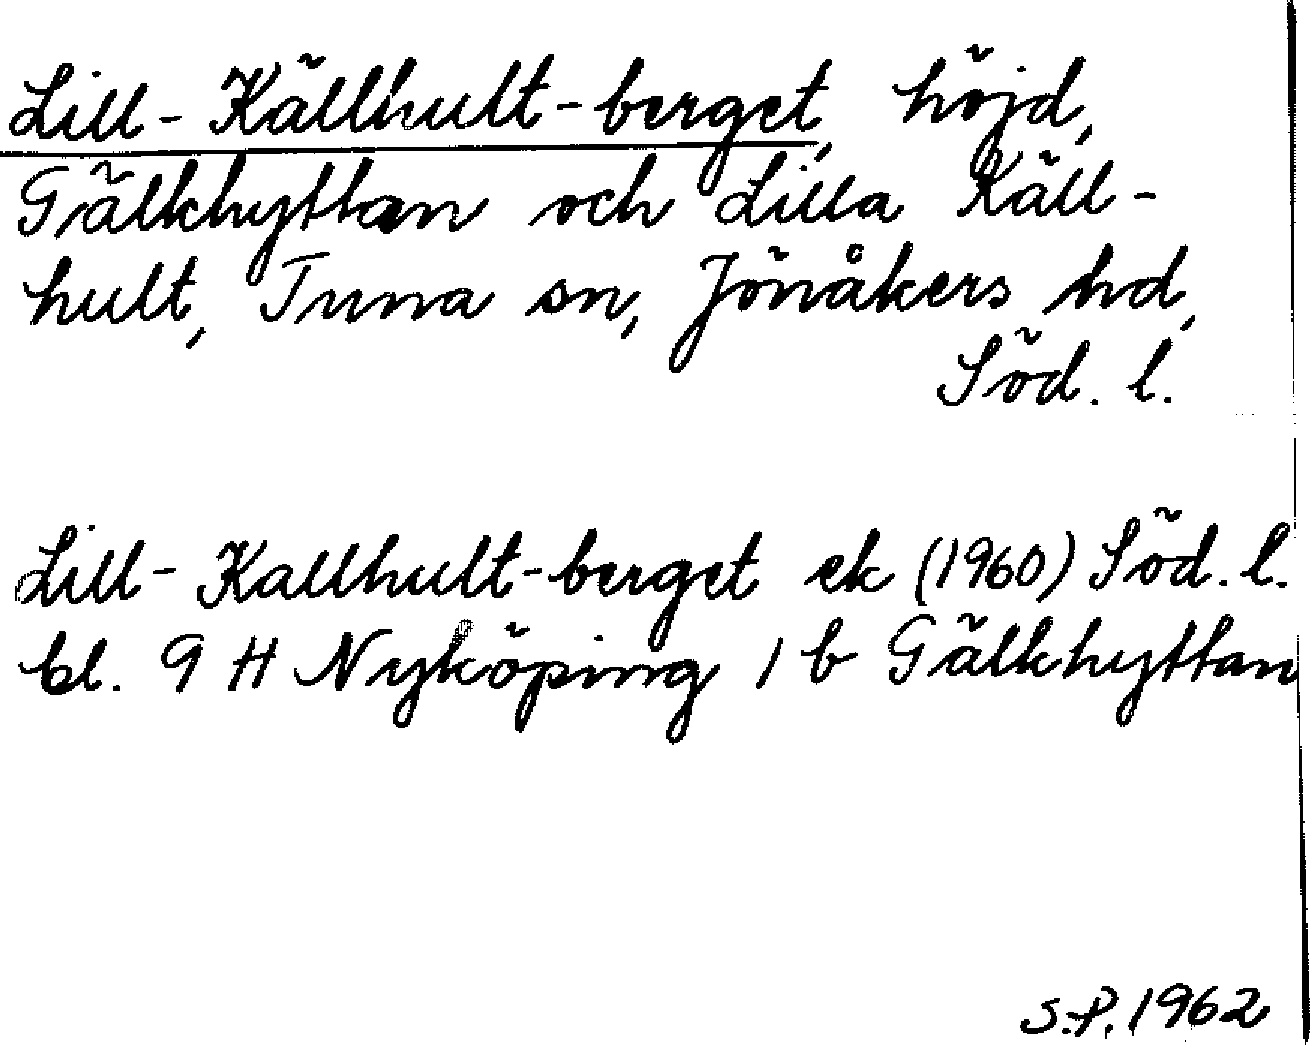 Lill-Källhult-berget, höjd,
Gälkhyttan och Lilla Käll-
hult, Tuna sn, Jönåkers hd,
Söd. l.
Lill-Kallhult-berget ek (1960) Söd. l.
bl. 9 H Nyköping 1 b Gälkhyttan
S.P. 1962